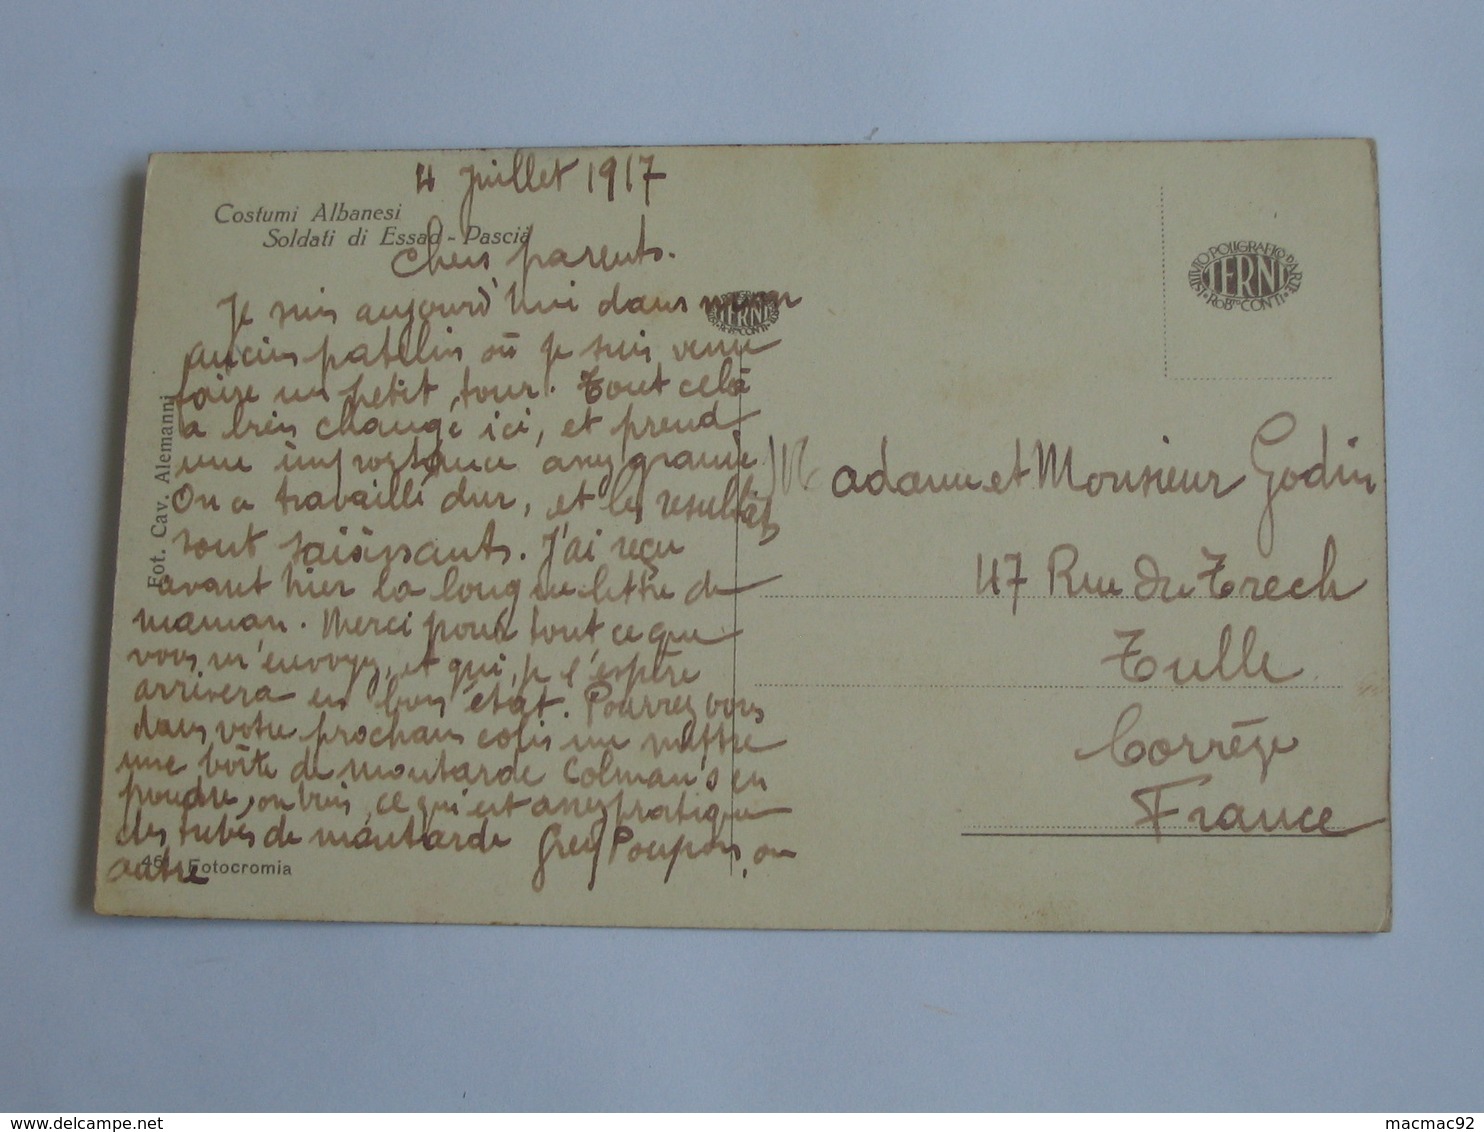 4 juillet 1917
Costumi Albanesi
Soldati di Essad - Pascià
Chers parents.
Je suis aujourd'hui dans mon
ancien patelin où je suis venu
faire un petit tour. Tout celà
a bien changé ici, et prend
une importance assez grande
On a travaillé dur, et les résultats
sont saisissants. J'ai reçu
avant hier la longue lettre de
maman. Merci pour tout ce que
vous m'envoyez, et qui, je l'espère
arrivera en bon état. Pourrez vous
dans votre prochain colis me mettre
une boîte de moutarde Colman's en
poudre, ou bien, ce qui est assez pratique
des tubes de moutarde Grey Poupon, ou
autre
Fot. Cav. Alemanni
Fotocromia
TERNI
ISTITUTO POLIGRAFICO D'ARTE
ROB.TO CONTI
TERNI
Madame et Monsieur Godin
47 Rue du Trech
Tulle
Corrèze
France
macmac92